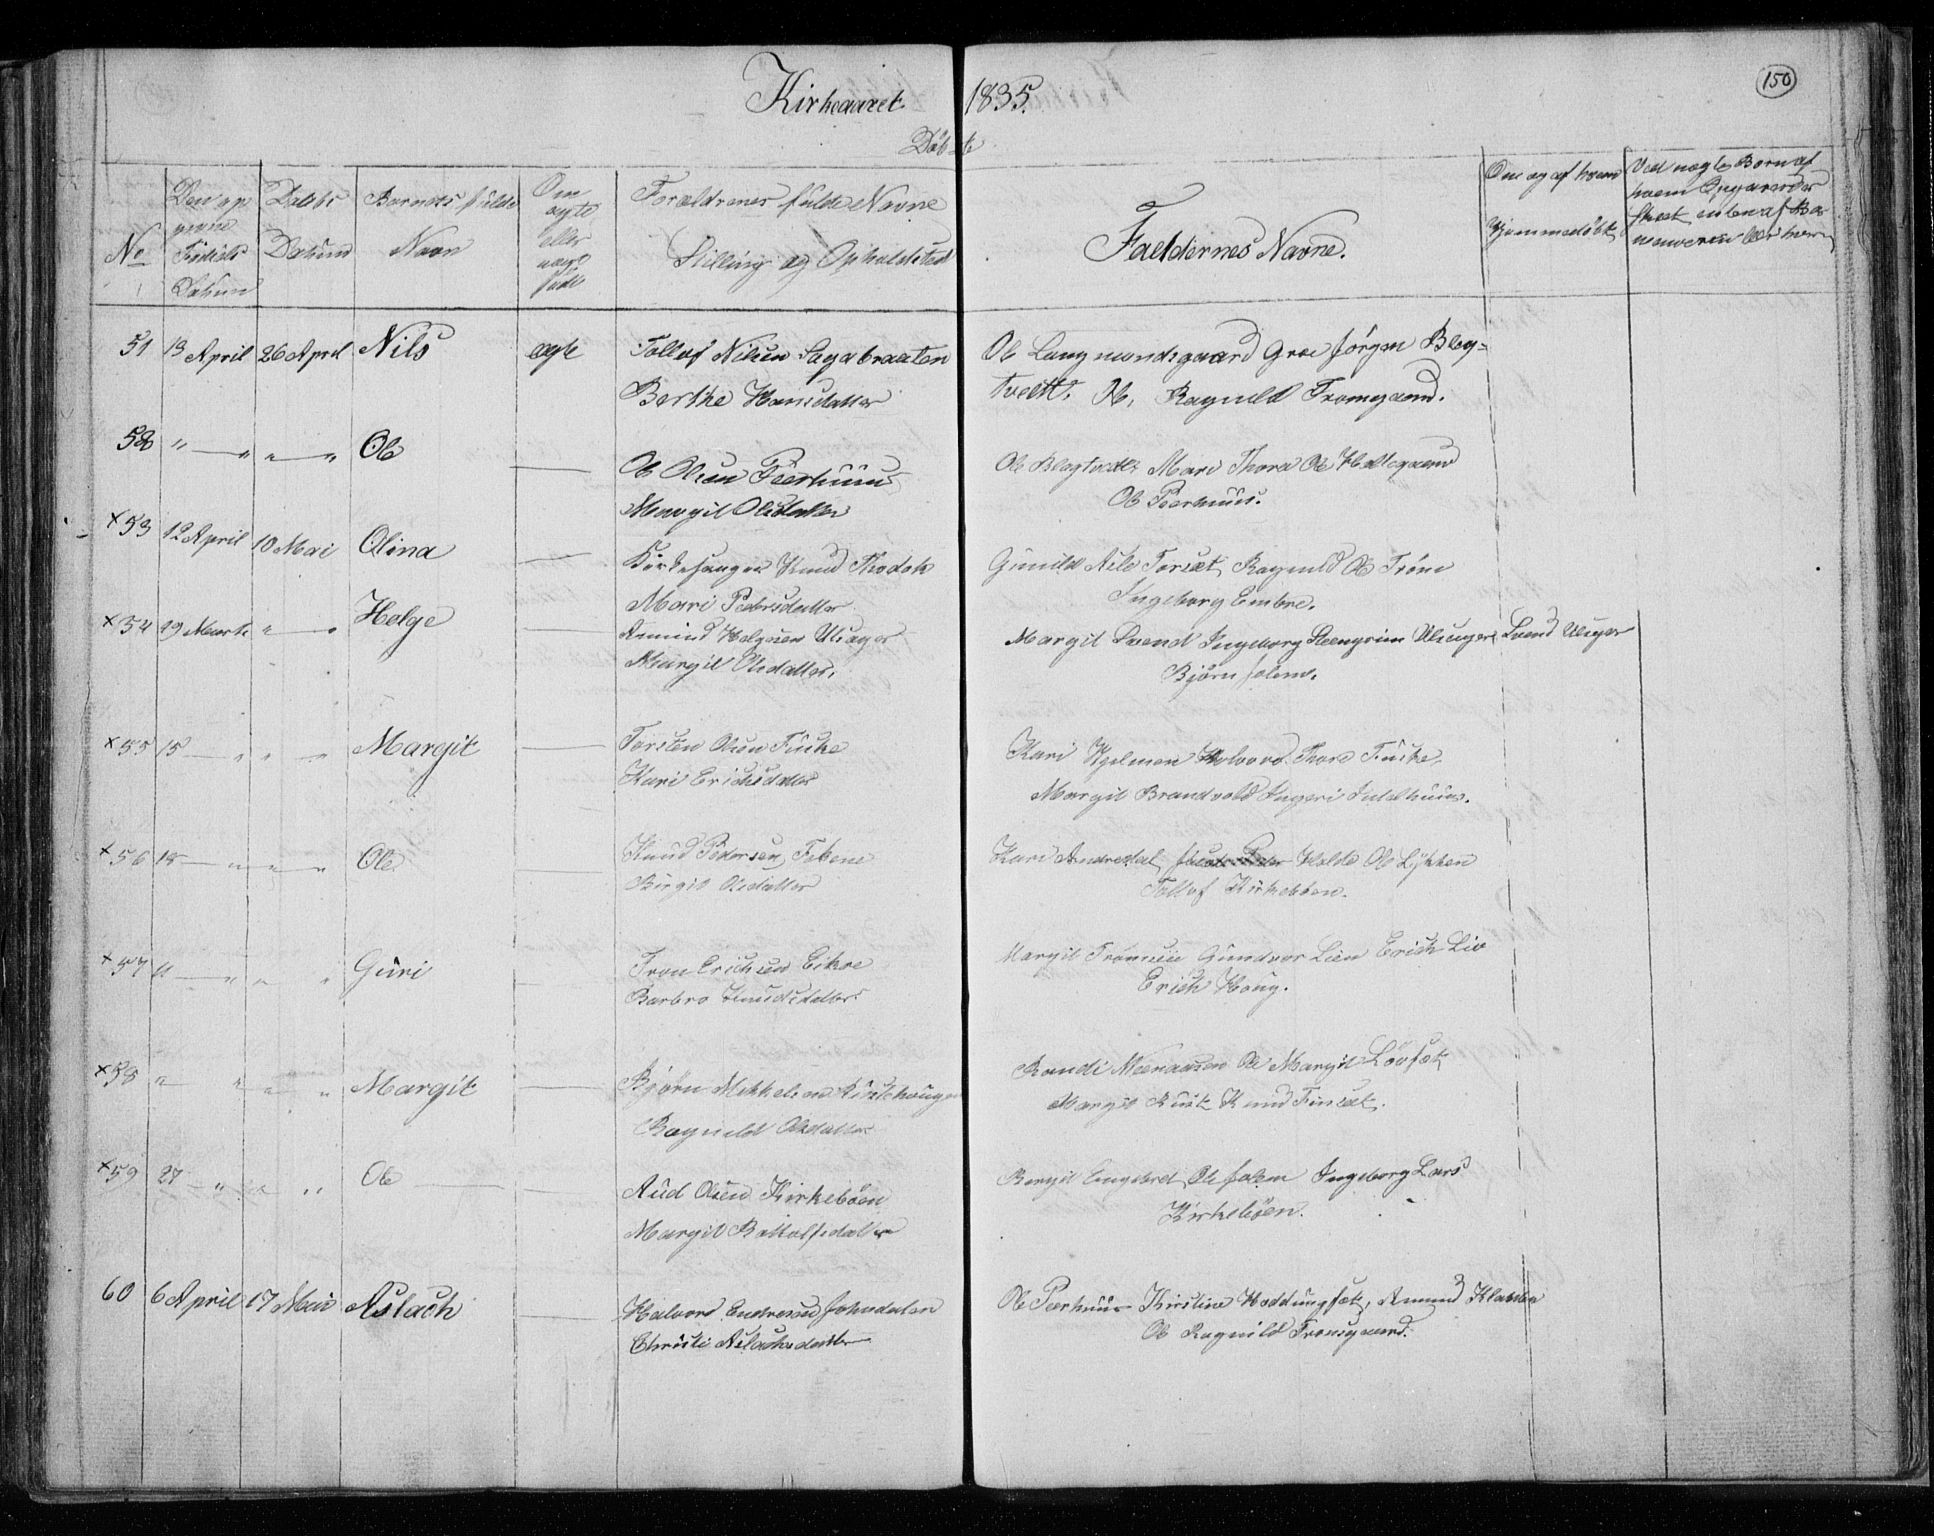 Kirkeaaret 1835.
150
Døbte
No
Den op
givne
Fødsels
Datum
Daabs
Datum
Barnets fulde
Navn
Om
ægte
eller
uægte
født
Forældrenes fulde Navne
Stilling og Opholdsted
Faddernes Navne.
Om og af hvem
Hjemmedøbt
Ved uægte Børn af
hvem
51 13 April 26 April Nils ægte Tollef Nilsen Sagabraaten
Berthe Hansdatter
Ole Langmandsgaard Groe Jørgen Bleg=
tvedt. Ole, Ragnild Tromgaard.
52 " — " " — " Ole — Ole Olsen Peerhuus
Margit Olsdatter
Ole Blegtvedt Mari Thora Ole
Ole Peerhuus.
x 53 12 April 10 Mai Olina — Kirkesanger Knud
Mari Pedersdatter
Gunild Nils Torset, Ragnild Ole Trøm
Ingeborg Embre.
x 54 29 Marts " — " Helge — Amund Helgesen Ulsager
Margit Olsdatter.
Margit Svend Ingeborg Steengrim Ulsager Svend Ulsager
Bjørn Solem.
x 55 15 — " " — " Margit — Torsten Olsen Finhe
Kari Erichsdatter
Kari Hjelmen Holvord Thore Finhe,
Margit Brandvold Ingeri Intelhuus.
x 56 18 — " " — " Ole — Knud Pedersen
Birgit Olsdatter
Kari Ole Løkken
Tollef Kirkebøen.
x 57 11 — " " " Guri — Tron Erichsen Eikre
Barbro Knudsdatter
Margit Gundvor Lien Erich Lie
Erich Houg.
x 58 " — " " " Margit — Bjørn Mikkelsen
Ragnild Olsdatter
Randi Ole Margit Løvset
Margit Rust Knud Finset.
x 59 27 — " " " Ole — — Aud Olsen Kirkebøen
Margit Bottolfsdatter
Bergit Engebret Ole Solem Ingeborg Lars
Kirkebøen.
60 6 April 17 Mai Aslach — Halvord Endresen Johnsdalen
Christi Aslachsdatter
Ole Peerhuus Kirstine Hoddungset, Amund
Ole Ragnild Tromsgaard.